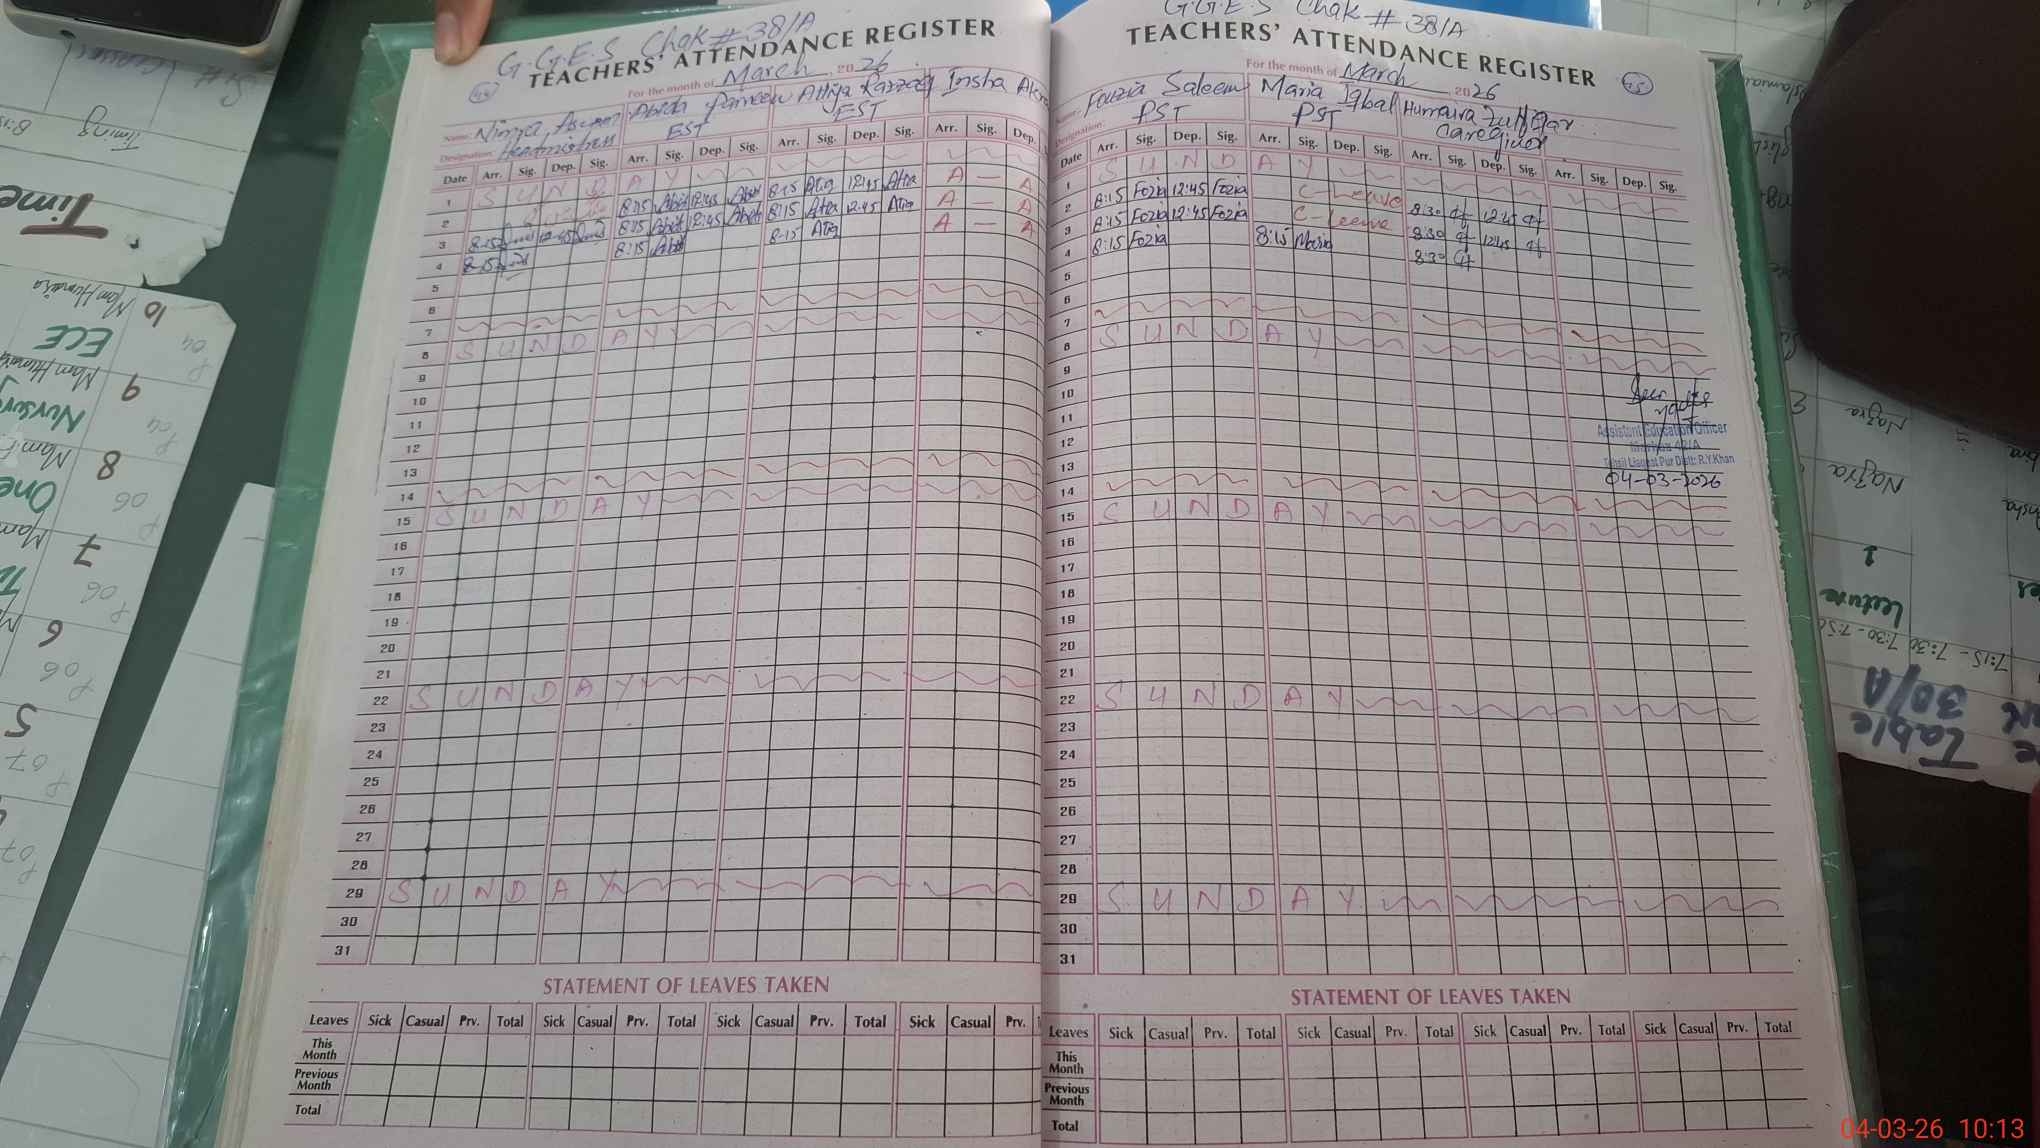 G.G.E.S Chak # 38/A
TEACHERS' ATTENDANCE REGISTER
For the month of March 2026
Name: Nimra Aslam Abida Parveen Attiya Razzaq Insha Akr
Designation: Headmistress EST EST
Date Arr. Sig. Dep. Sig. Arr. Sig. Dep. Sig. Arr. Sig. Dep. Sig. Arr. Sig. Dep.
1 S U N D A Y
2 8:15 Abid 12:45 Abid 8:15 Atia 12:45 Atia A — A
3 8:15 12:45 8:15 Abid 12:45 Abid 8:15 Atia 12:45 Atia A — A
4 8:15 8:15 Abid 8:15 Atia A — A
5
6
7
8 S U N D A Y
9
10
11
12
13
14
15 S U N D A Y
16
17
18
19
20
21
22 S U N D A Y
23
24
25
26
27
28
29 S U N D A Y
30
31
STATEMENT OF LEAVES TAKEN
Leaves Sick Casual Prv. Total Sick Casual Prv. Total Sick Casual Prv. Total Sick Casual Prv.
This Month
Previous Month
Total
G.G.E.S Chak # 38/A
TEACHERS' ATTENDANCE REGISTER
45
For the month of March 2026
Name: Fouzia Saleem Maria Iqbal Humaira Zulfqar
Designation: PST PST Caregiver
Date Arr. Sig. Dep. Sig. Arr. Sig. Dep. Sig. Arr. Sig. Dep. Sig. Arr. Sig. Dep. Sig.
1 S U N D A Y
2 8:15 Fozia 12:45 Fozia C-Leave 8:30 12:45
3 8:15 Fozia 12:45 Fozia C-Leave 8:30 12:45
4 8:15 Fozia 8:15 Maria 8:30
5
6
7
8 S U N D A Y
9
10
11
12
13
14
15 S U N D A Y
16
17
18
19
20
21
22 S U N D A Y
23
24
25
26
27
28
29 S U N D A Y
30
31
Assistant Education Officer
Markaz 42/A
Tehsil Liaqat Pur Distt: R.Y.Khan
04-03-2026
STATEMENT OF LEAVES TAKEN
Leaves Sick Casual Prv. Total Sick Casual Prv. Total Sick Casual Prv. Total Sick Casual Prv. Total
This Month
Previous Month
Total
Timing
Time
10
Mam Humaira
ECE
9
Nursery
8
One
7
6
5
Nazra
Nazra
Lecture
1
7:15 - 7:30
7:30 - 7:50
Table
38/A
04-03-26 10:13